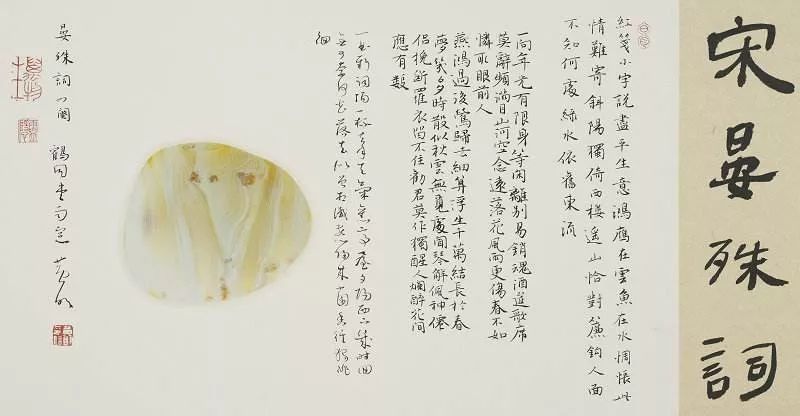 宋晏殊詞
紅箋小字說盡平生意鴻鴈在雲魚在水惆悵此
情難寄斜陽獨倚西樓遙山恰對簾鉤人面
不知何處綠水依舊東流
一向年光有限身等閑離別易銷魂酒筵歌席
莫辭頻滿目山河空念遠落花風雨更傷春不如
憐取眼前人
燕鴻過後鶯歸去細算浮生千萬緒長於春
夢幾多時散似秋雲無覓處聞琴解佩神僊
侶挽斷羅衣留不住勸君莫作獨醒人爛醉花間
應有數
一曲新詞酒一杯去年天氣舊亭臺夕陽西下幾時回
無可奈何花落去似曾相識燕歸來小園香徑獨徘
徊
晏殊詞四闋